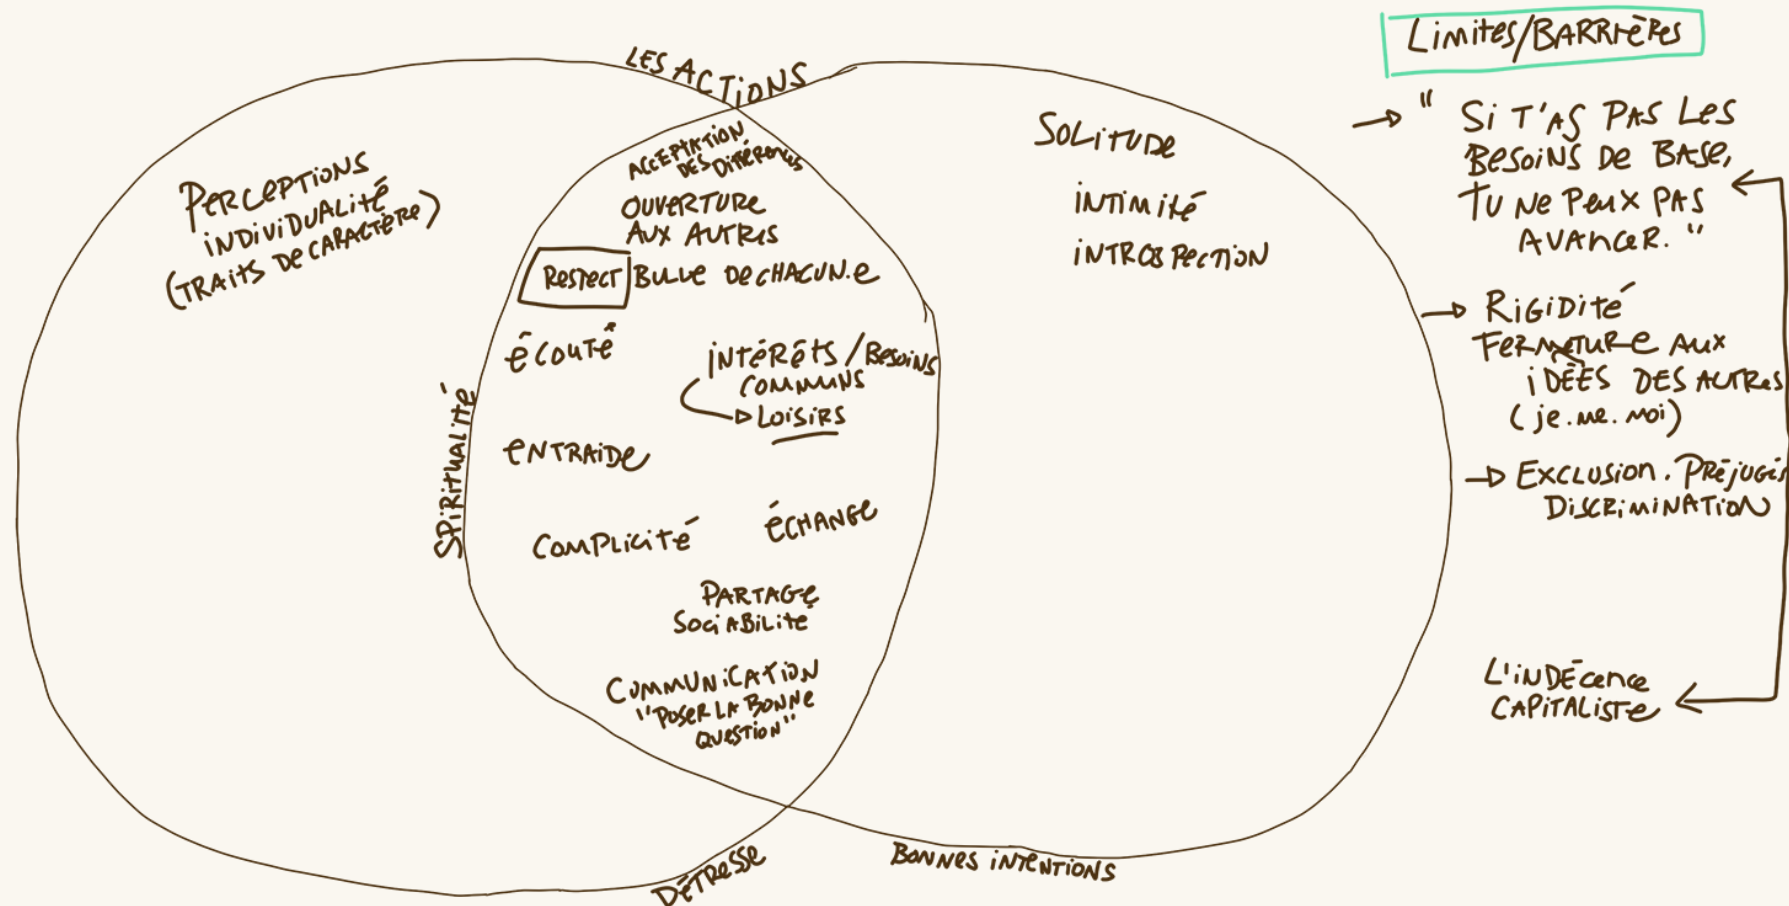 LES ACTIONS
PERCEPTIONS
INDIVIDUALITÉ
(TRAITS DE CARACTÈRE)
SPIRITUALITÉ
ACCEPTATION
DES DIFFÉRENCES
OUVERTURE
AUX AUTRES
RESPECT BULLE DE CHACUN.E
ÉCOUTÉ
INTÉRÊTS / BESOINS
COMMUNS
LOISIRS
ENTRAIDE
COMPLICITÉ
ÉCHANGE
PARTAGE
SOCIABILITE
COMMUNICATION
"POSER LA BONNE
QUESTION"
DÉTRESSE
BONNES INTENTIONS
SOLITUDE
INTIMITÉ
INTROSPECTION
Limites/BARRIÈRES
→ " Si T'AS PAS LES
BESOINS DE BASE,
TU NE PEUX PAS
AVANCER. "
→ RIGIDITÉ
FERMETURE AUX
IDÉES DES AUTRES
(je.me.moi)
→ EXCLUSION. PRÉJUGÉS
DISCRIMINATION
L'INDÉCENCE
CAPITALISTE